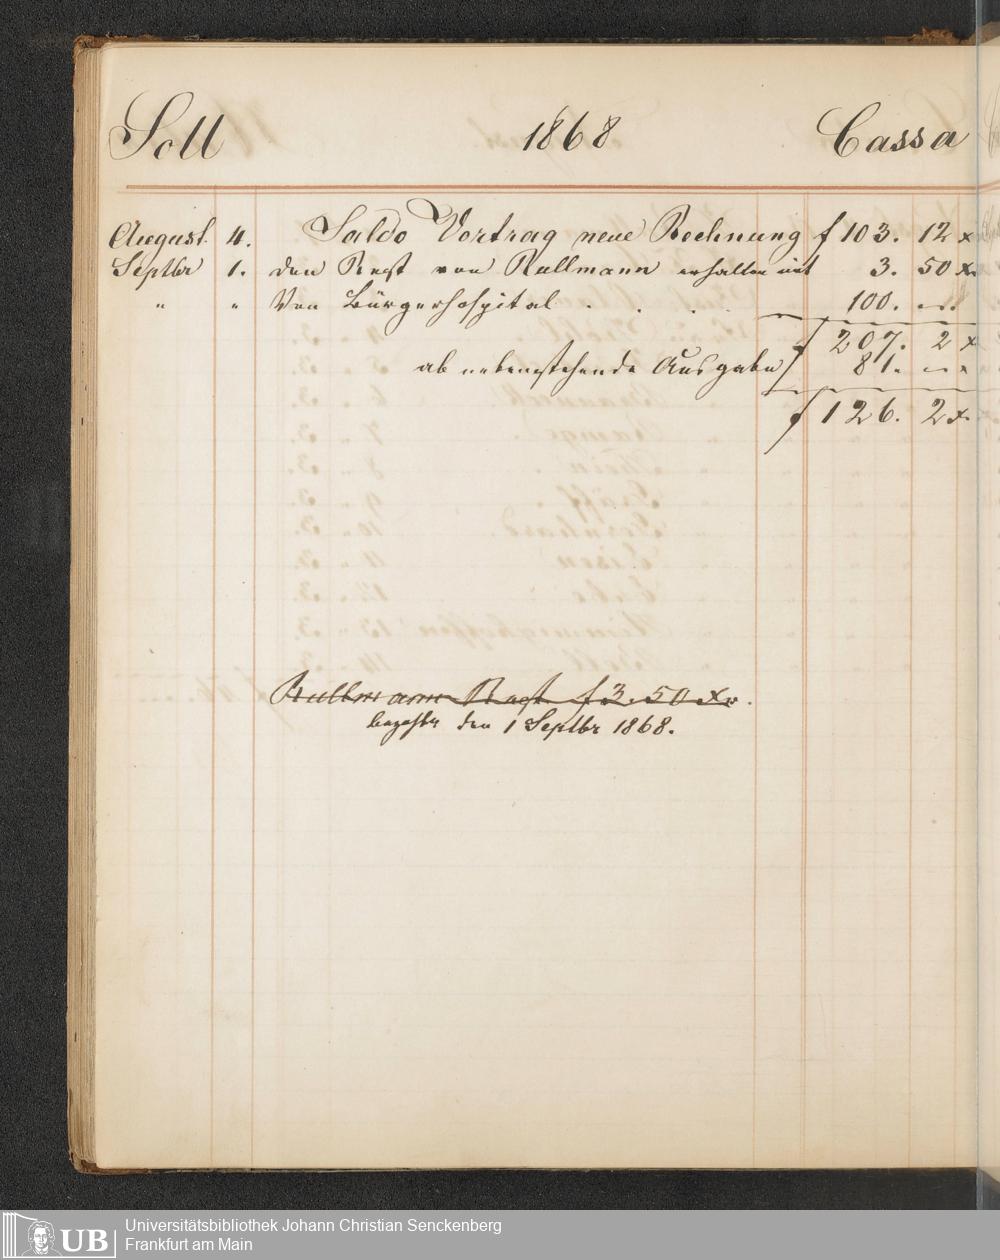 Soll 1868 Cassa
August 4. Saldo Vortrag neue Rechnung f 103. 12 x
Septbr 1. den Rest von Rullmann erhalten mit 3. 50 x.
" " Von Bürgerhospital . . . . 100. —.
f 207. 2 x
ab nebenstehende Ausgabe f 81. —.
f 126. 2 x.
Rullmann Rest f 3. 50 xr.
bezahlt den 1 Septbr 1868.
UB
Universitätsbibliothek Johann Christian Senckenberg
Frankfurt am Main